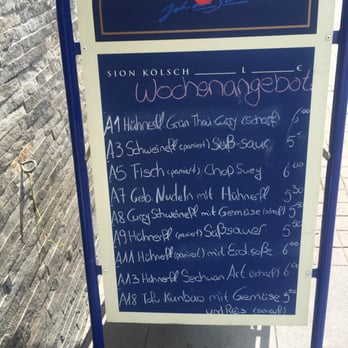 SION KÖLSCH ____ L ____ €
Wochenangebot
A1 Hühnerfl Grün Thai-Curry (scharf) 6,00
A3 Schweinefl (paniert) Süß-saur 5,
A5 Fisch (paniert) Chop Suey 6,00
A7 Geb. Nudeln mit Hühnerfl 5,50
A8 Curry Schweinefl mit Gemüse (scharf) 5,50
A9 Hühnerfl (paniert) Süßsauer 5,90
A11 Hühnerfl (paniert) mit Erd.soße 6,00
A13 Hühnerfl Sechuan Art (scharf) 6,00
A18 Tofu Kunbao mit Gemüse 5,50
und Reis (scharf)